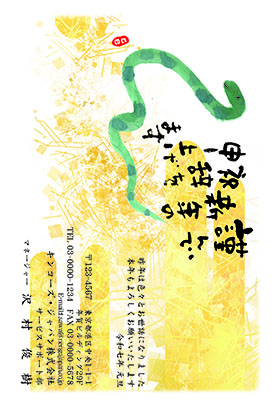 謹んで
新年の
お祝詞を
申し上げ
ます
昨年は色々とお世話になりました
本年もよろしくお願いいたします
令和七年 元旦
〒123-4567 東京都港区中央1-1-1
年賀ビルディング20F
TEL 03-0000-1234 FAX 03-0000-5678
キンコーズ・ジャパン株式会社
サービスサポート部
マネージャー 沢村 俊樹